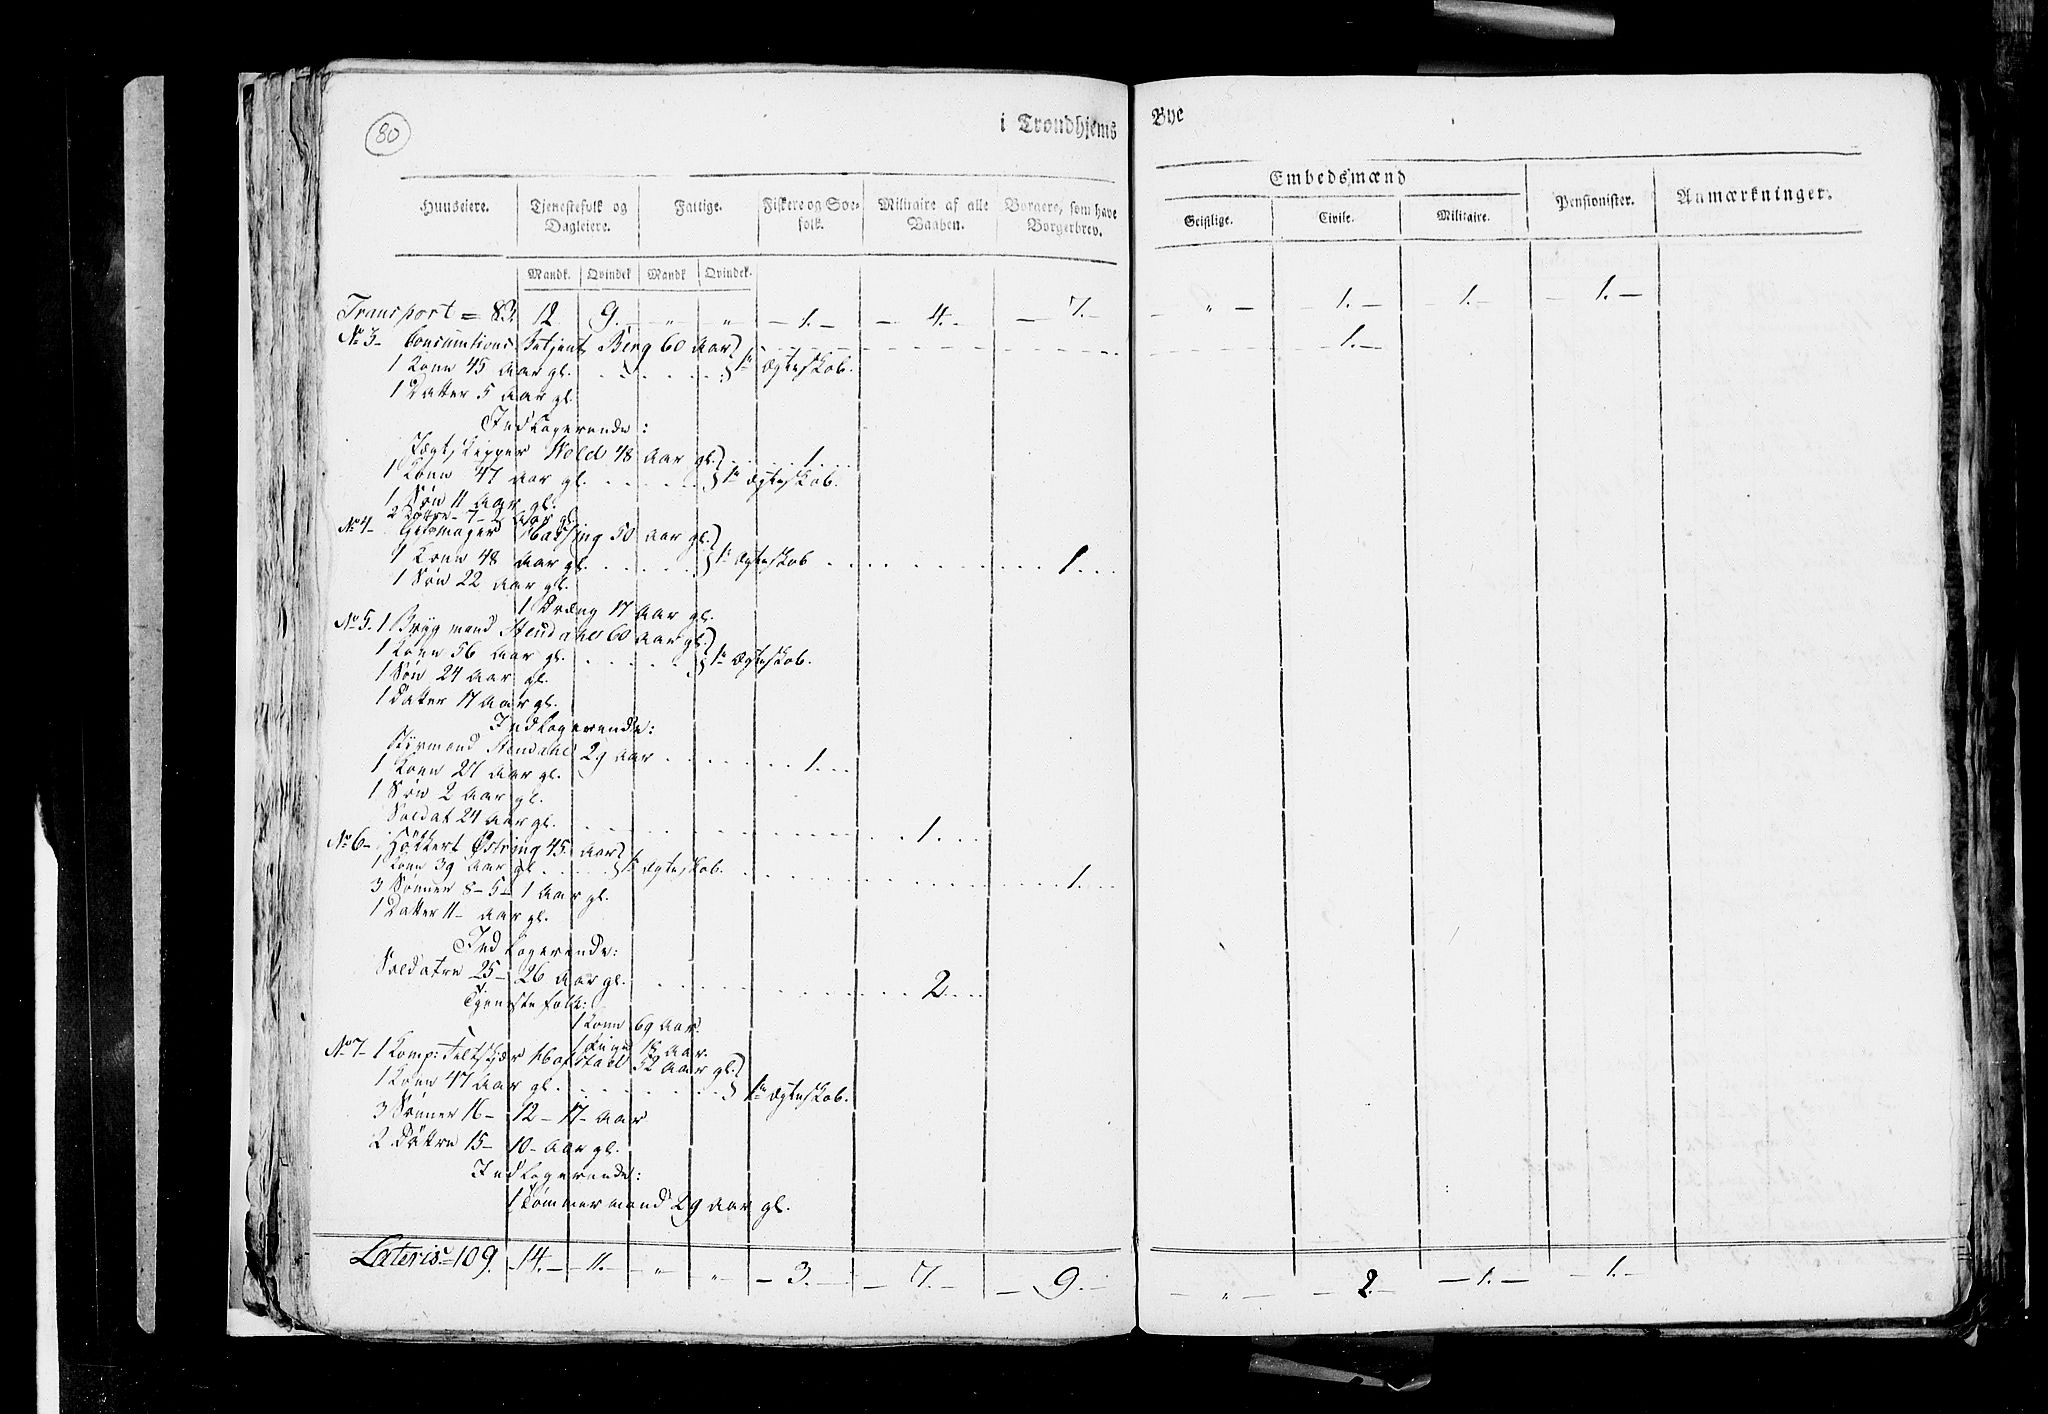 80
i Trondhjems Bye
Huuseiere. Tjenestefolk og Dagleiere. Fattige. Fiskere og Søefolk. Militaire af alle Vaaben. Borgere, som have Borgerbrev. Embedsmænd Pensionister. Anmærkninger.
Geistlige. Civile. Militaire.
Mandk. Qvindek Mandk Qvindek.
Transport = 83. 12 9. - „ - „ - 1. - - 4. - - 7. - - „ - 1. - 1. - - 1. -
No 3- Consumtions Betjent Berg 60 Aar 1.
1 Kone 45 Aar gl. 1te Ægteskab.
1 Datter 5 Aar gl.
Indlogerende:
Jægt Skipper Wold 48 Aar gl. 1
1 Kone 47 Aar gl. 1te Ægteskab.
1 Søn 11 Aar gl.
2 Døtre - 7 - 2 Aar gl.
No 4- mager 50 Aar gl.
1 Kone 48 Aar gl. 1te Ægteskab 1
1 Søn 22 Aar gl.
1 Dræng 17 Aar gl.
No 5. 1 Bryg mand Stendahl 60 Aar gl.
1 Kone 56 Aar gl. 1te Ægteskab.
1 Søn 24 Aar gl.
1 Datter 17 Aar gl.
Indlogerende:
Styrmand Stendahl 29 Aar 1.
1 Kone 27 Aar gl.
1 Søn 2 Aar gl.
Soldat 24 Aar gl. 1
No 6- Høkker Østring 45 Aar
1 Kone 39 Aar gl. 1te Ægteskab. 1.
3 Sønner 8 - 5 - 1 Aar gl.
1 Datter 11 - Aar gl.
Indlogerende:
Soldatre 25 - 26 Aar gl. 2.
Tjeneste folk:
1 Kone 69 Aar.
1 Pige 18 Aar.
No 7- 1 Komp: Feltskjær 52 Aar gl.
1 Kone 47 Aar gl. 1te Ægteskab.
3 Sønner 16 - 12 - 17 - Aar
2 Døtre 15 - 10 - Aar gl.
Indlogerende:
1 Tømmermand 29 Aar gl.
Lateris = 109. 14. - 11. - „ - „ - 3. - - 7. - - 9. - - „ - - 2. - - 1. - - 1. -